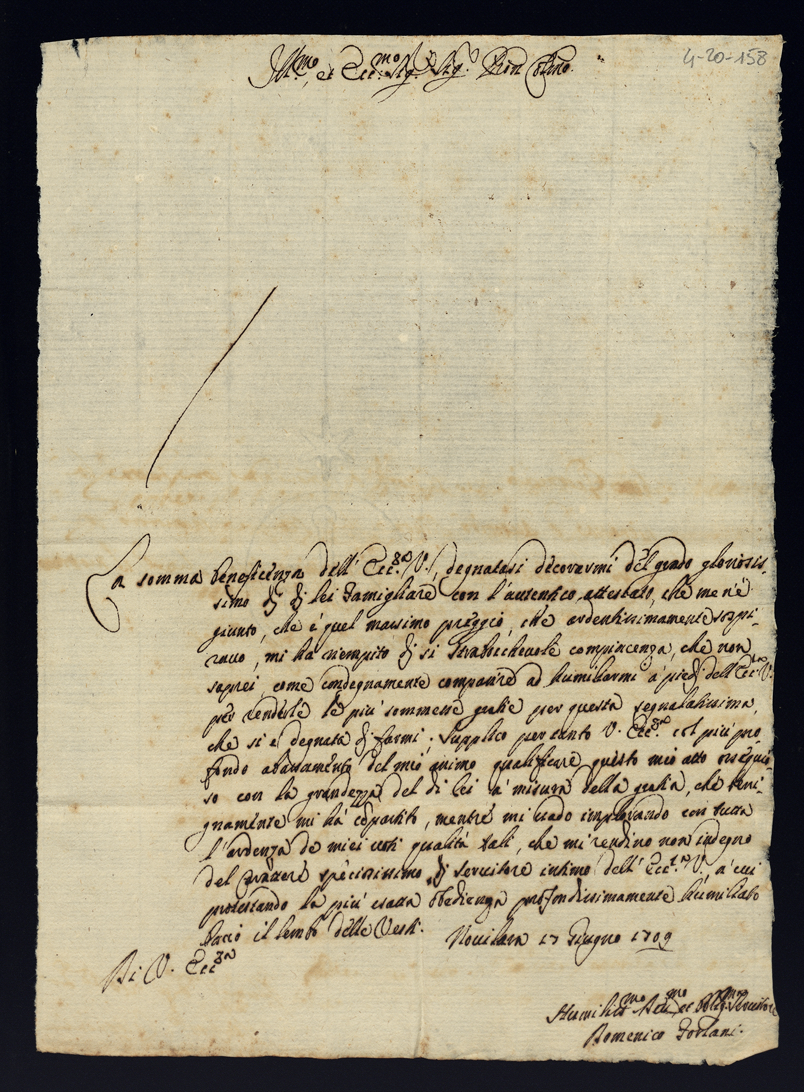 4-20-158
Ill.mo et Ecc.mo Sig.r Sig.r Pron Col.mo
La somma beneficenza dell' Ecc.za V., degnatasi decorarmi del grado gloriosis-
simo di di lei Famigliare con l'autentico attestato, che me n'è
giunto, che è quel massimo preggio, che ardentissimamente sospi-
ravo, mi ha riempito di sì strabichevole compiacenza, che non
saprei, come condegnamente comparire ad humiliarmi a' piedi dell' Ecc.za V.
per renderle le più sommesse gratie per questa segnalatissima,
che si è degnata di farmi. Supplico per tanto V. Ecc.za col più pro-
fondo abassamento del mio animo qualificare questo mio atto ossequio-
so con la grandezza del di lei a' misura della gratia, che beni-
gnamente mi hà compartito, mentre mi vado implorando con tutta
l'ardenza de miei voti qualità tali, che mi rendino non indegno
del carattere speciosissimo di servitore intimo dell' Ecc.za V. a' cui
protestando la più esatta obedienza profondissimamente humiliato
bacio il lembo delle Vesti.
Novilara 17 Giugno 1709
Di V. Ecc.za
Humiliss.mo Dev.mo et Oblig.mo Servitore
Domenico